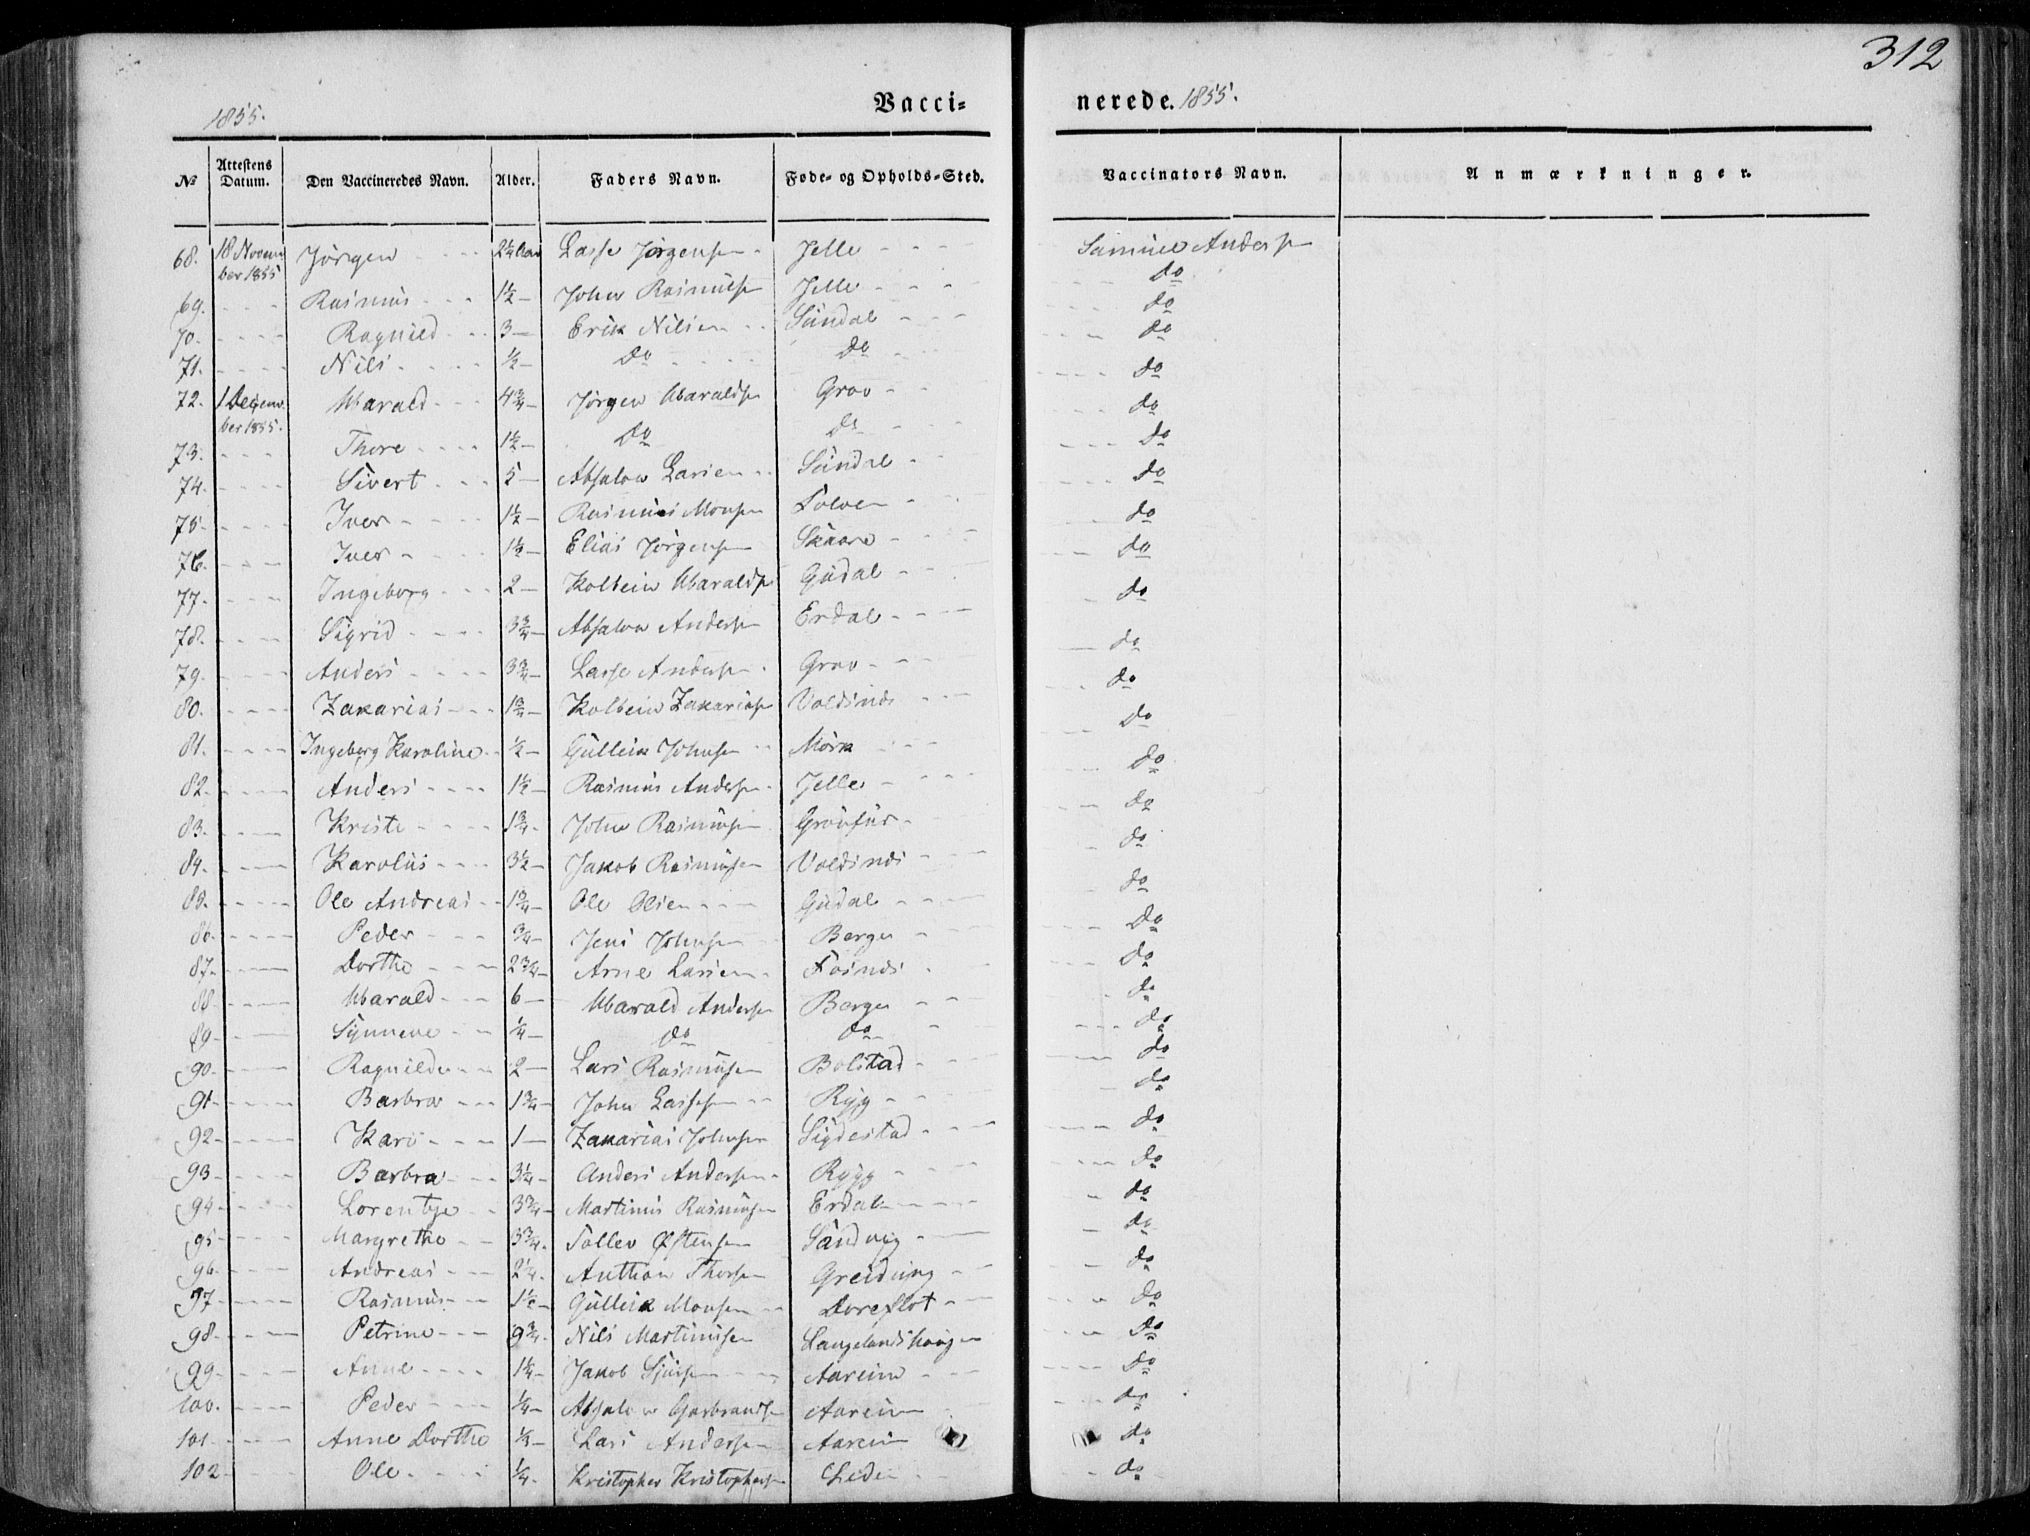 312
1855. Vacci- nerede. 1855.
No Attestens Datum. Den Vaccineredes Navn. Alder. Faders Navn. Føde- og Opholds-Sted. Vaccinators Navn. Anmærkninger.
68. 18 Novem- ber 1855 Jörgen 2¼ Aar Lasse Jørgensen Jelle Samuel Andersen
69. Rasmus 1½ John Rasmusen Jelle do
70. Ragnild 3 Erik Nilsen Sundal do
71. Nils ½ do do do
72. 1 Decem- ber 1855. Harald 4¾ Jørgen Haraldsen Grov do
73. Thore 1½ do do do
74. Sivert 5 Absalon Larsen Sundal do
75. Iver 1½ Rasmus Monsen do
76. Iver 1½ Elias Jørgensen Skaare do
77. Ingeborg 2 Kolbein Haraldsen Gudal do
78. Sigrid 3¾ Absalon Andersen Erdal do
79. Anders 3¾ Lasse Andersen Grov do
80. Zakarias 1¾ Kolbein Zakariasen Voldsnes do
81. Ingeborg Karoline ½ Gulleik Johnsen Mörk do
82. Anders 1½ Rasmus Andersen Jelle do
83. Kristi 1¾ John Rasmusen do
84. Karolus 3½ Jakob Rasmusen Voldsnes do
85. Ole Andreas 1¾ Ole Olsen Gudal do
86. Peder ¾ Jens Johnsen Berge do
87. Dorthe 2¾ Arne Larsen Fosnes do
88. Harald 6 Harald Andersen Berge do
89. Synneve ¼ do do do
90. Ragnilde 2 Lars Rasmusen Bolstad do
91. Barbra 1¾ John Lassesen Rygg do
92. Kari 1 Zakarias Johnsen Sigdestad do
93 Barbra 3¼ Anders Andersen Rygg do
94 Lorentse 3¾ Martinus Rasmusen Erdal do
95 Margrethe 3¾ Tollev Østensen Sandvig do
96. Andreas 2¼ Anthon Thorsen Greidung do
97 Rasmus 1½ Gulleik Monsen Doreflot do
98. Petrine 9¾ Nils Martinusen Langelandshoug do
99. Anne 1¼ Jakob Sjursen Aareim do
100. Peder ¼ Absalon Garbrandsen Aareim do
101 Anne Dorthe ¼ Lars Andersen Aareim do
102 Ole ¼ Kristopher Kristophersen do